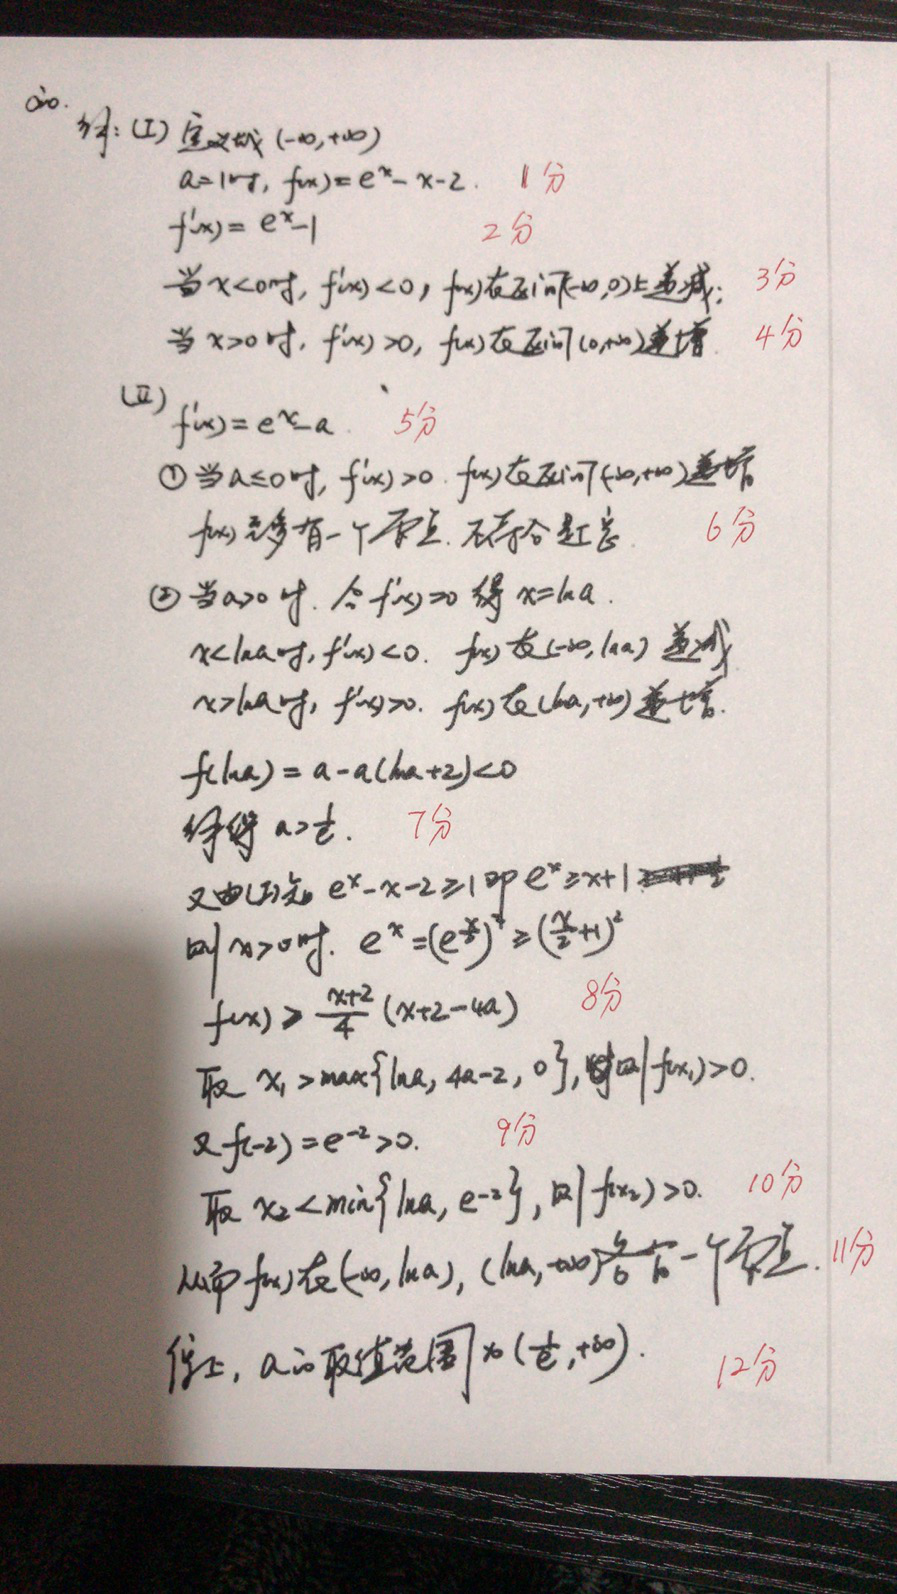 20.
解:(I) 定义域(-∞,+∞)
a=1时, f(x)=e^x-x-2. 1分
f'(x)=e^x-1 2分
当x<0时, f'(x)<0, f(x)在区间(-∞,0)上递减; 3分
当x>0时, f'(x)>0, f(x)在区间(0,+∞)递增. 4分
(II)
f'(x)=e^x-a. 5分
①当a≤0时, f'(x)>0. f(x)在区间(-∞,+∞)递增
f(x)至多有一个零点. 不符合题意. 6分
②当a>0时. 令f'(x)=0 得 x=lna.
x<lna时, f'(x)<0. f(x)在(-∞,lna) 递减
x>lna时, f'(x)>0. f(x)在(lna,+∞)递增.
f(lna)=a-a(lna+2)<0
解得 a>1/e. 7分
又由(I)知 e^x-x-2≥1即e^x≥x+1
则x>0时. e^x=(e^{x/2})^2≥(x/2+1)^2
f(x)≥(x+2)/4 (x+2-4a) 8分
取 x₁>max{lna, 4a-2, 0}, 则f(x₁)>0.
又f(-2)=e^{-2}>0. 9分
取 x₂<min{lna, e-2}, 则f(x₂)>0. 10分
从而f(x)在(-∞,lna), (lna,+∞)各有一个零点. 11分
综上, a的取值范围为(1/e,+∞). 12分